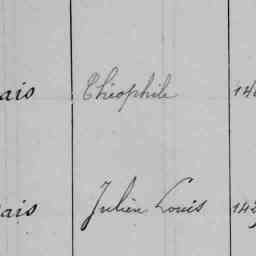 ais Théophile 14
ais Julien Louis 14